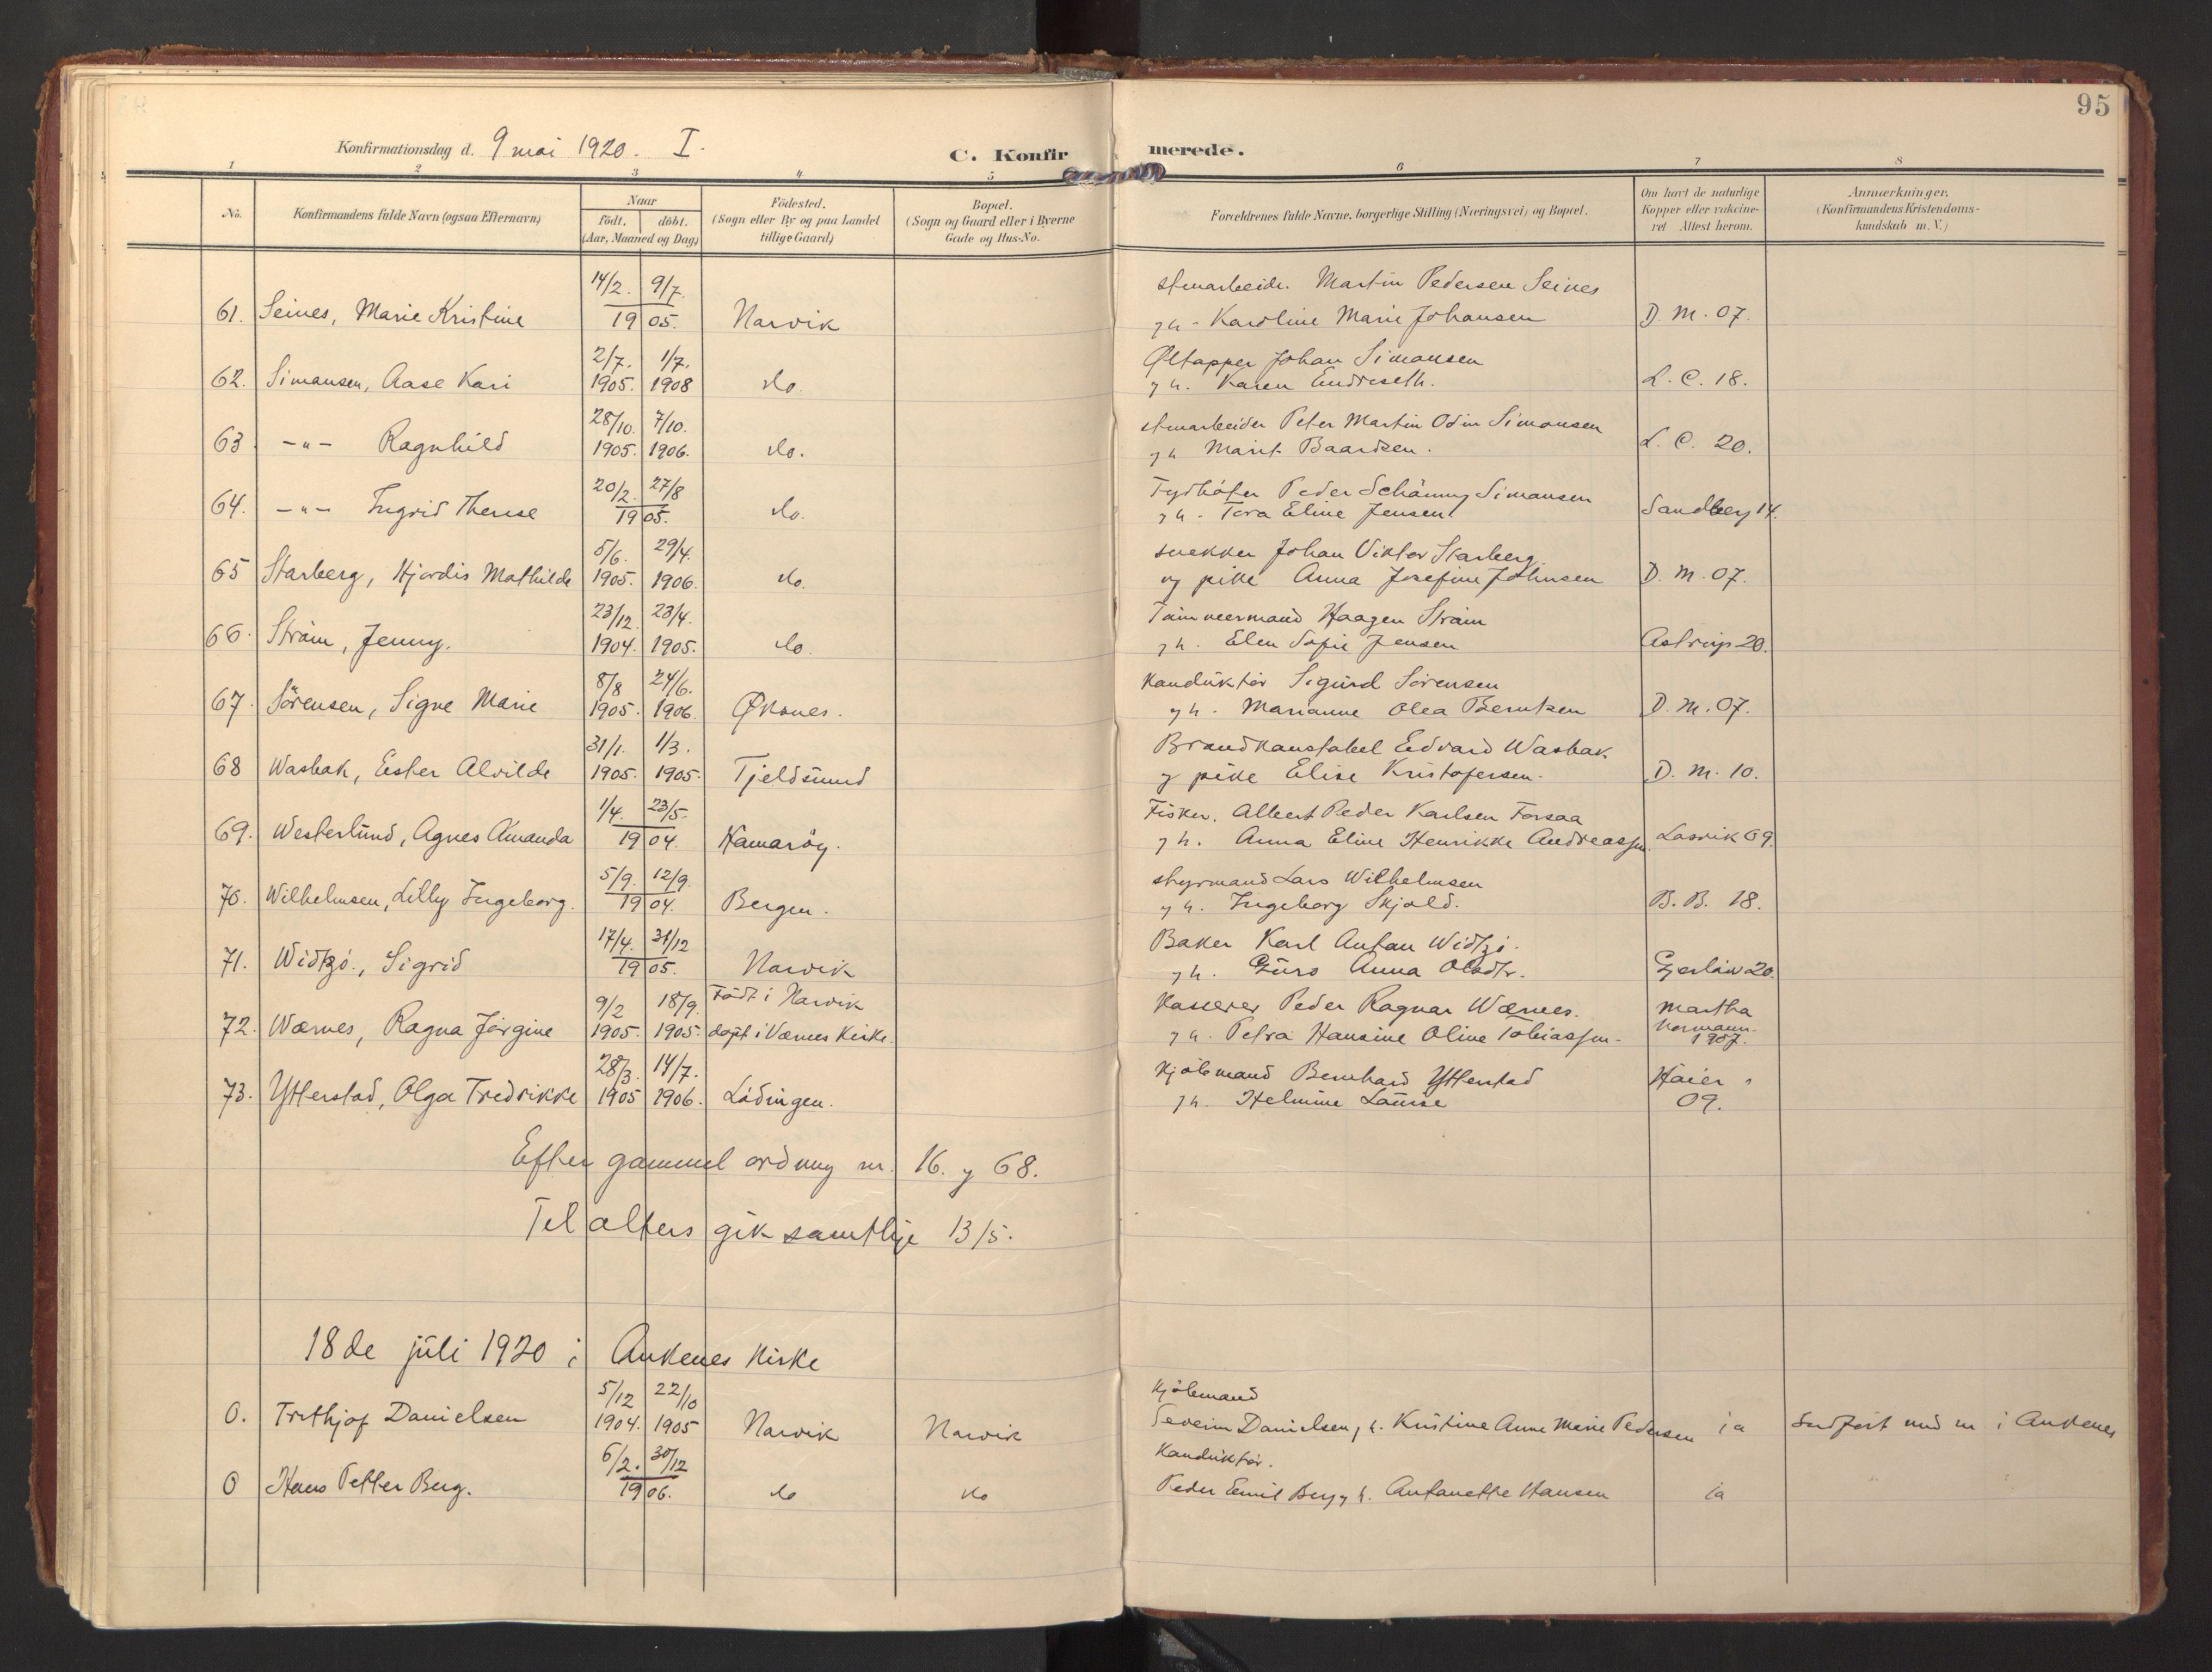 95
Konfirmationsdag d. 9 mai 1920. I.
C. Konfirmerede.
1 2 3 4 5 6 7 8
No.
Konfirmandens fulde Navn (ogsaa Efternavn)
Naar
födt. döbt.
(Aar, Maaned og Dag)
Födested.
(Sogn eller By og paa Landet
tillige Gaard)
Bopæl.
(Sogn og Gaard eller i Byerne
Gade og Hus-No.
Forældrenes fulde Navne, borgerlige Stilling (Næringsvei) og Bopæl.
Om havt de naturlige
Kopper eller vakcine-
ret Attest herom.
Anmærkninger.
(Konfirmandens Kristendoms-
kundskab m. V.)
14/2. 9/7. stenarbeider. Martin Pedersen Seines
61. Seines, Marie Kristine 1905. Narvik g h - Karoline Marie Johansen D. M. 07.
2/7. 1/7. Øltapper Johan Simonsen
62. Simonsen, Aase Kari 1905. 1908 do. g h. Karen Endreseth. L. C. 18.
28/10. 7/10. stenarbeider Peter Martin Odin Simonsen
63. -"- Ragnhild 1905. 1906. do. g h Marit Baardsen. L. C. 20.
20/2. 27/8 Fydbøter Peder Schånny Simonsen
64. -"- Ingrid Therese 1905. do. g h. Tora Eline Jensen Sandberg 14.
5/6. 29/4. snekker Johan Viktor Starberg
65 Starberg, Hjordis Mathilde 1905. 1906. do. og pike Anna Josefine Johnsen D. M. 07.
23/12. 23/4. Tømmermand Haagen Strøm
66. Strøm, Jenny. 1904. 1905. do. g h. Elen Sofie Jensen Astrup 20.
8/8 24/6. Konduktør Sigurd Sørensen
67. Sörensen, Signe Marie 1905. 1906. Øksnes. g h. Marianne Olea Berntsen D. M. 07.
31/1. 1/3. Brandkonstabel Edvard Wasbak
68 Wasbak, Ester Alvilde 1905. 1905. Tjeldsund g pike Elise Kristofersen. D. M. 10.
1/4. 23/5. Fisker. Albert Peder Karlsen Forsaa
69. Westerlund, Agnes Amanda 1904. Hamarøy. g h. Anna Eline Henrikke Andreassen. Lasvik 09.
5/9. 12/9. styrmand Lars Wilhelmsen
70. Wilhelmsen, Lilly Ingeborg. 1904. Bergen. g h. Ingeborg Skjold. B. B. 18.
17/4. 31/12 Baker Karl Anton Widtzø.
71. Widtzø., Sigrid 1905. Narvik g h. Guro Anna Olsdtr. Gerlaw 20.
9/2 18/9. Født i Narvik Kasserer Peder Ragnar Wærnes. Martha
72. Wærnes, Ragna Jørgine 1905. 1905. døpt i Værnes Kirke. g h. Petra Hansine Oline Tobiassen. Normann 1907.
28/3. 14/7. Kjøbmand Bernhard Ytterstad Høier
73. Ytterstad, Olga Fredrikke 1905 1906. Lødingen. g h. Helmine Lauise 09.
Efter gammel ordning nr. 16. g 68.
Til alters gik samtlige 13/5.
18de juli 1920 i Ankenes Kirke
5/12 22/10 Kjøbmand
0. Frithjof Danielsen 1904. 1905 Narvik Narvik Severin Danielsen g h. Kristine Anne Marie Pedersen ja Indført med nr i Ankenes
6/2. 30/12 Konduktør.
0 Hans Petter Berg. 1906. do do Peder Emil Berg g h. Antonette Hansen ja